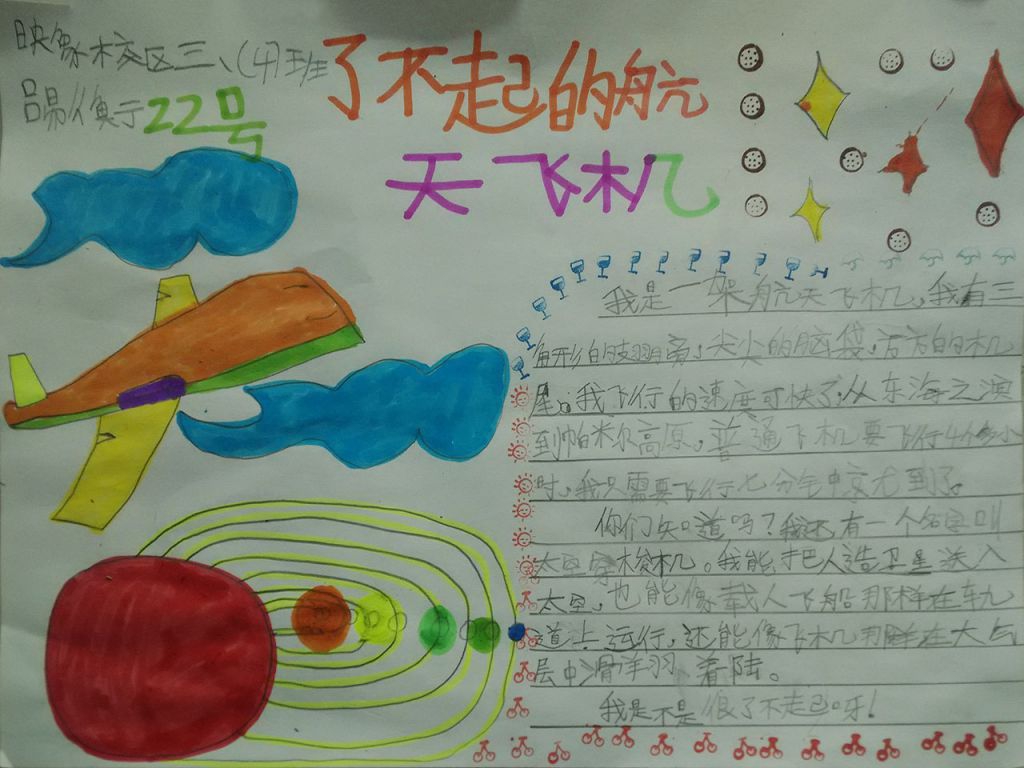 映象校区三、(4)班
22号
了不起的航
天飞机
我是一架航天飞机,我有三
角形的翅膀,尖尖的脑袋,方方的机
尾。我飞行的速度可快了,从东海之滨
到帕米尔高原,普通飞机要飞行4个多小
时,我只需要飞行七分钟就到了。
你们知道吗?我还有一个名字叫
太空穿梭机。我能把人造卫星送入
太空,也能像载人飞船那样在轨
道上运行,还能像飞机那样在大气
层中滑翔 着陆。
我是不是很了不起呀!